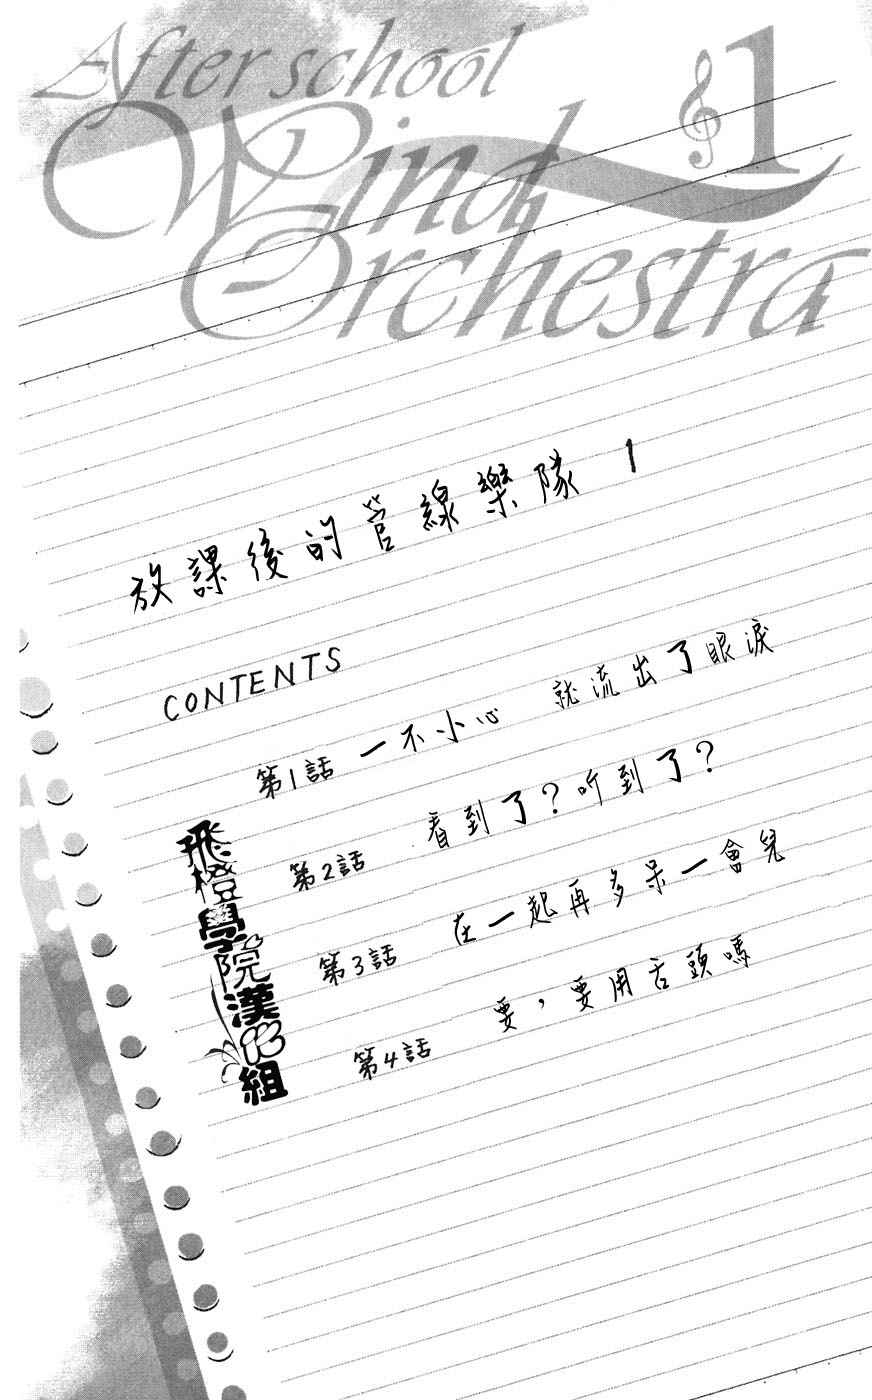 After school
Wind
Orchestra
1
放課後的管線樂隊 1
CONTENTS
第1話 一不小心 就流出了眼淚
第2話 看到了?听到了?
第3話 在一起再多呆一會兒
第4話 要，要用舌頭嗎
飛橙學院漢化組